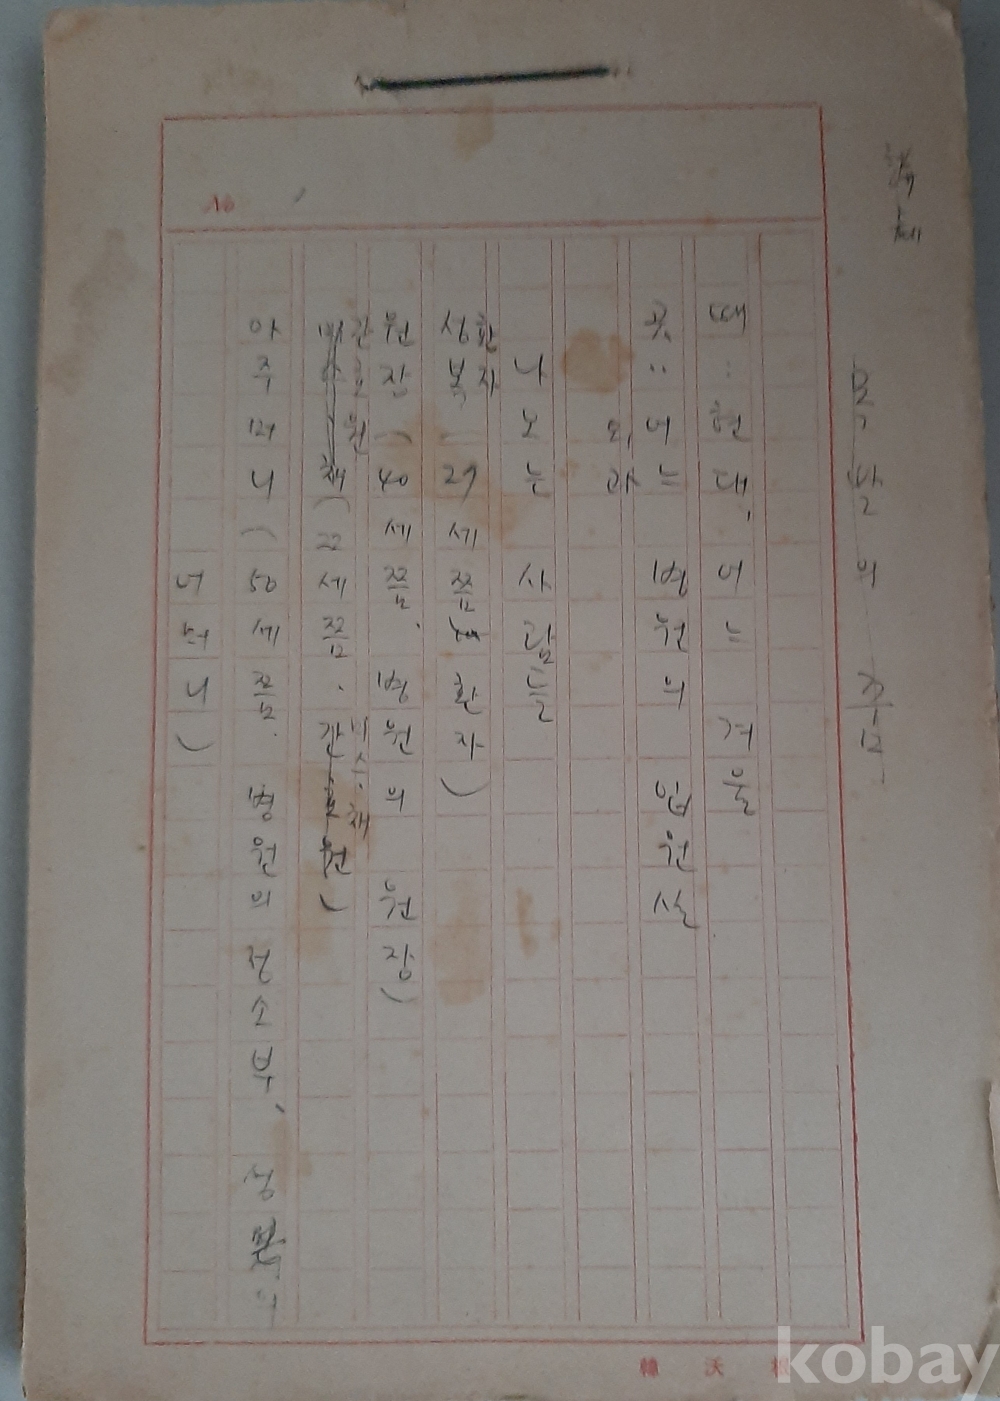 의 죽음
때: 현대, 어느 겨울
곳: 어느 병원의 입원실
외과
나오는 사람들
환자
성복 (27세쯤 환자)
원장 (40세쯤. 병원의 원장)
간호원
채 (22세쯤. 간호원)
미스·채
아주머니 (50세쯤. 병원의 청소부, 성복의
어머니)
No
韓 沃 根
kobay